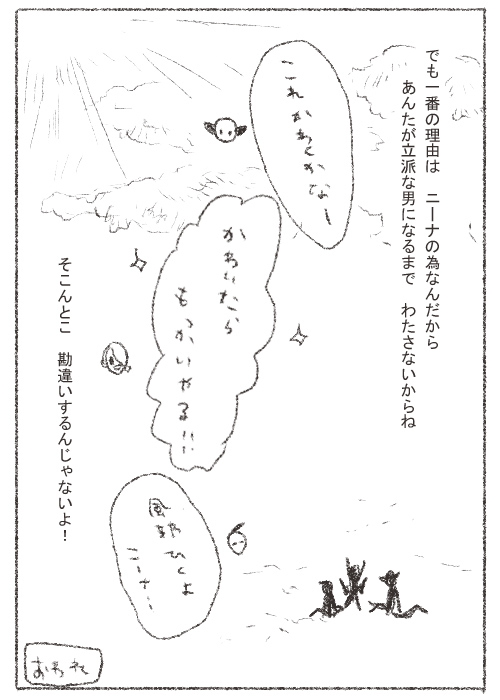 でも一番の理由は　ニーナの為なんだから
あんたが立派な男になるまで　わたさないからね
これかわくかなー
かわいたら
もっかいやる!!
風邪ひくよ
ニーナー
そこんとこ　勘違いするんじゃないよ！